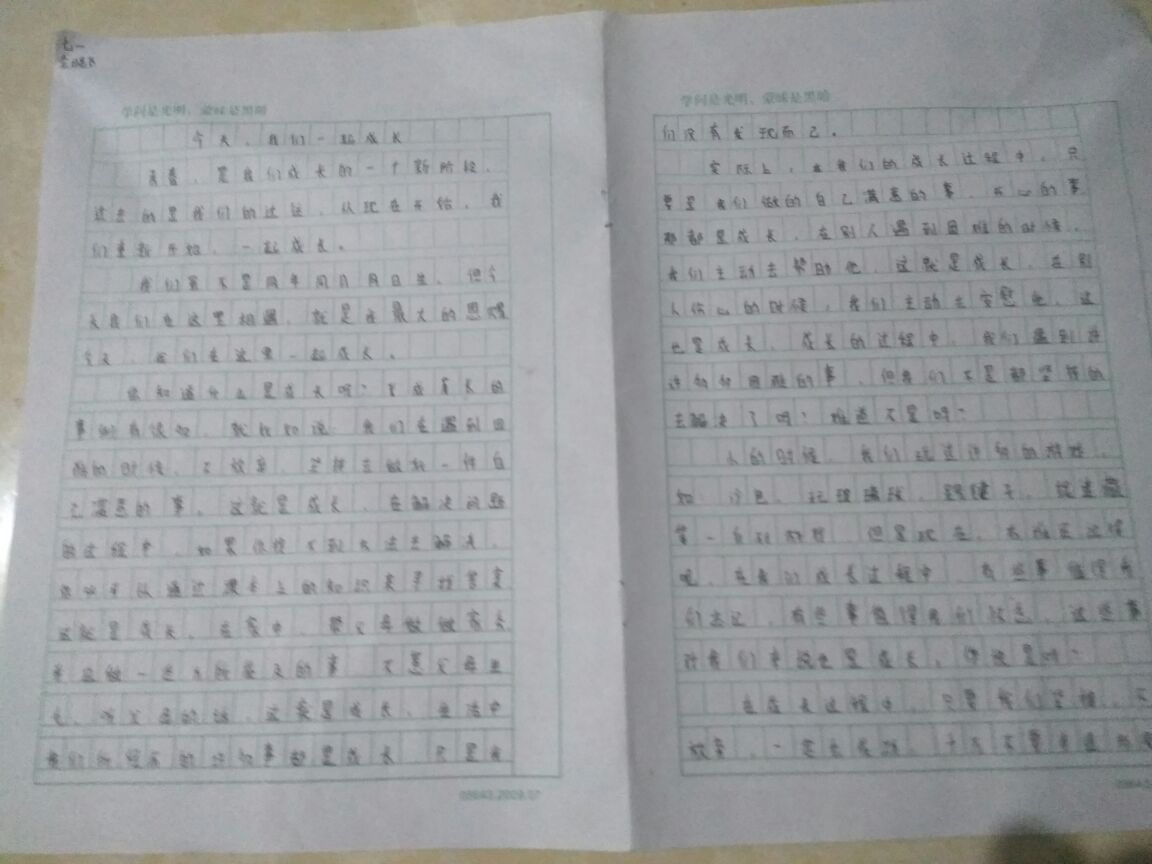 七一
学问是光明，蒙昧是黑暗
今天，我们一起成长
青春，是我们成长的一个新阶段，
过去的是我们的过往，从现在开始，我
们重新开始，一起成长。
我们虽不是同年同月同日生，但今
天我们在这里相遇，就是在最大的恩赐
今天，我们在这里一起成长。
你知道什么是成长吗？成长的
事例有很多，就比如说：我们在遇到困
难的时候，不放弃，坚持去做好一件自
己满意的事，这就是成长，在解决问题
的过程中，如果你找不到办法去解决，
你可以从通过课本上的知识来寻找答案
这就是成长，在家中，帮父母做做家务
并且做一些力所能及的事，不惹父母生
气，听父母的话，这也是成长，生活中
我们所经历的许多事都是成长，只是我
03643.2009.07
学问是光明，蒙昧是黑暗
们没有发现而已。
实际上，在我们的成长过程中，只
要是我们做的自己满意的事，开心的事
那都是成长，在别人遇到困难的时候，
我们主动去帮助他，这就是成长，在别
人伤心的时候，我们主动去安慰他，这
也是成长，成长的过程中，我们遇到许
许多多困难的事，但我们不是都坚强的
去解决了吗？难道不是吗？
小的时候，我们玩过许多的游戏，
如：沙包，玩玻璃球，踢毽子，捉迷藏
等一系列游戏，但是现在，
呢，在我们成长过程中，有些事值得我
们去记，有些事值得我们忘，这些事
对我们来说也是成长，你说是吗？
在成长过程中，只要我们坚持，不
放弃，一定会成功，千万不要